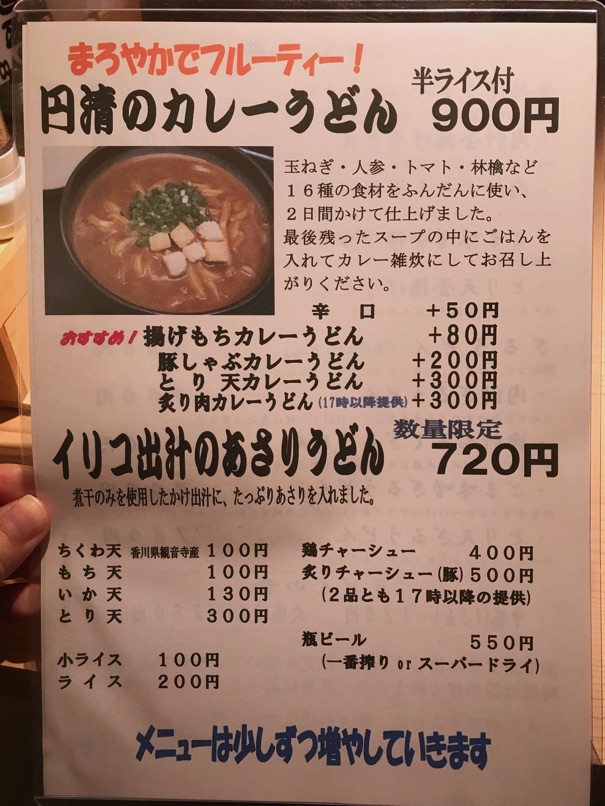 まろやかでフルーティー！
半ライス付
円清のカレーうどん 900円
玉ねぎ・人参・トマト・林檎など
１６種の食材をふんだんに使い、
２日間かけて仕上げました。
最後残ったスープの中にごはんを
入れてカレー雑炊にしてお召し上
がりください。
辛口 +50円
おすすめ！揚げもちカレーうどん +80円
豚しゃぶカレーうどん +200円
とり天カレーうどん +300円
炙り肉カレーうどん(17時以降提供) +300円
数量限定
イリコ出汁のあさりうどん 720円
煮干のみを使用したかけ出汁に、たっぷりあさりを入れました。
ちくわ天 香川県観音寺産 100円
もち天 100円
いか天 130円
とり天 300円
小ライス 100円
ライス 200円
鶏チャーシュー 400円
炙りチャーシュー(豚) 500円
(２品とも１７時以降の提供)
瓶ビール 550円
(一番搾り or スーパードライ)
メニューは少しずつ増やしていきます